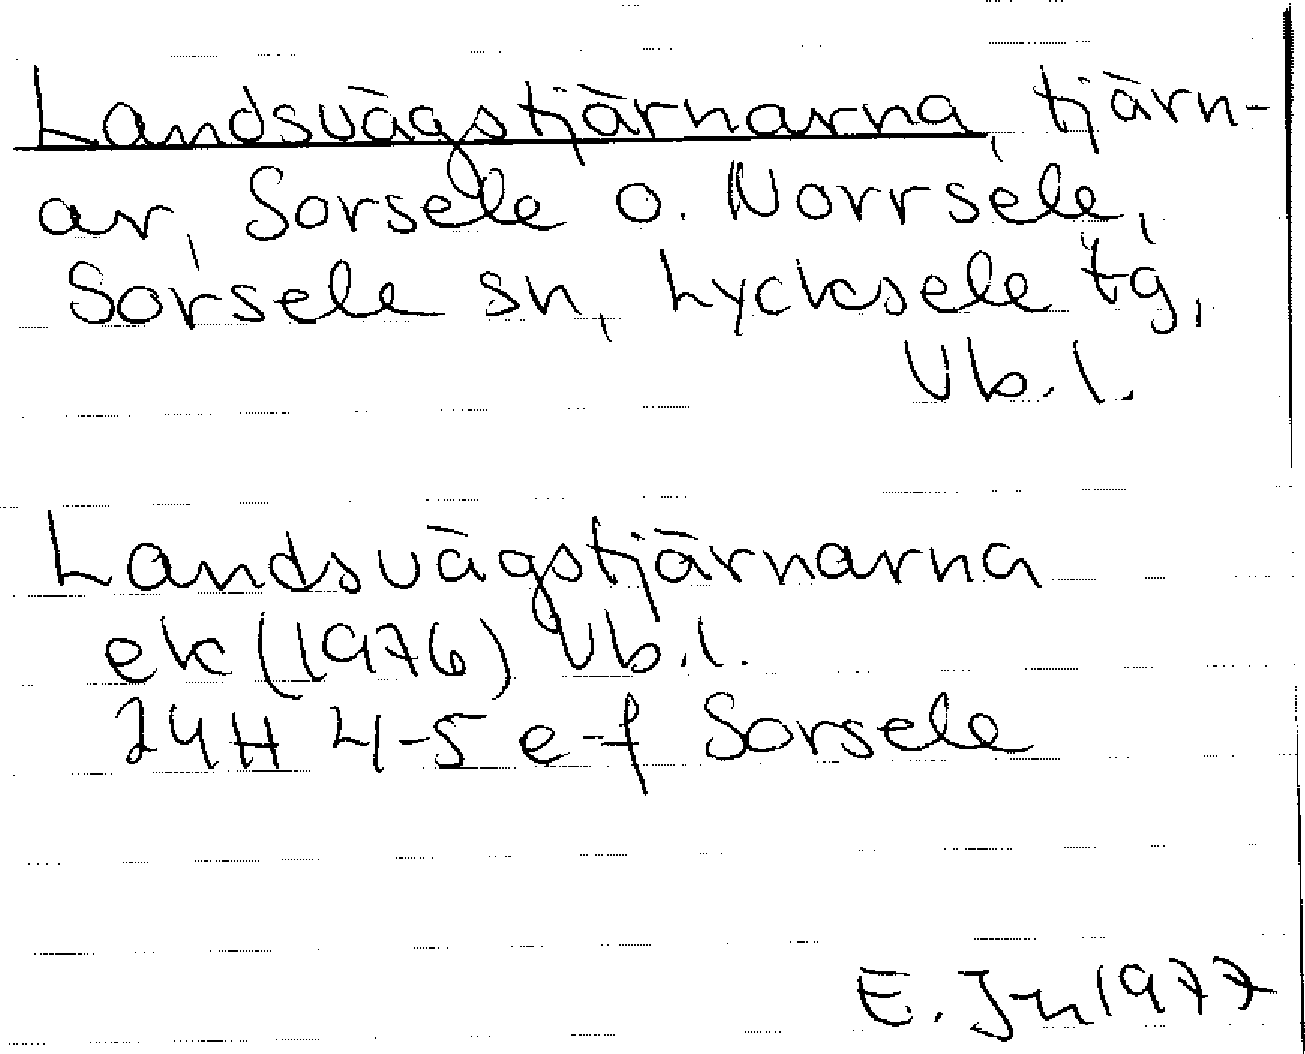 Landsvägstjärnarna, tjärn-
ar, Sorsele o. Norrsele,
Sorsele sn, Lycksele tg,
Vb. l.
Landsvägstjärnarna
ek (1976) Vb. l.
24H 4-5 e-f Sorsele
E. 1977